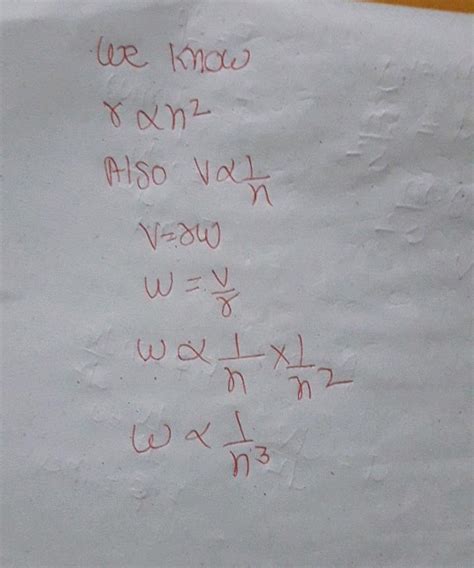 We know
r ∝ n²
Also V ∝ 1/n
V = rω
ω = V/r
ω ∝ 1/n × 1/n²
ω ∝ 1/n³